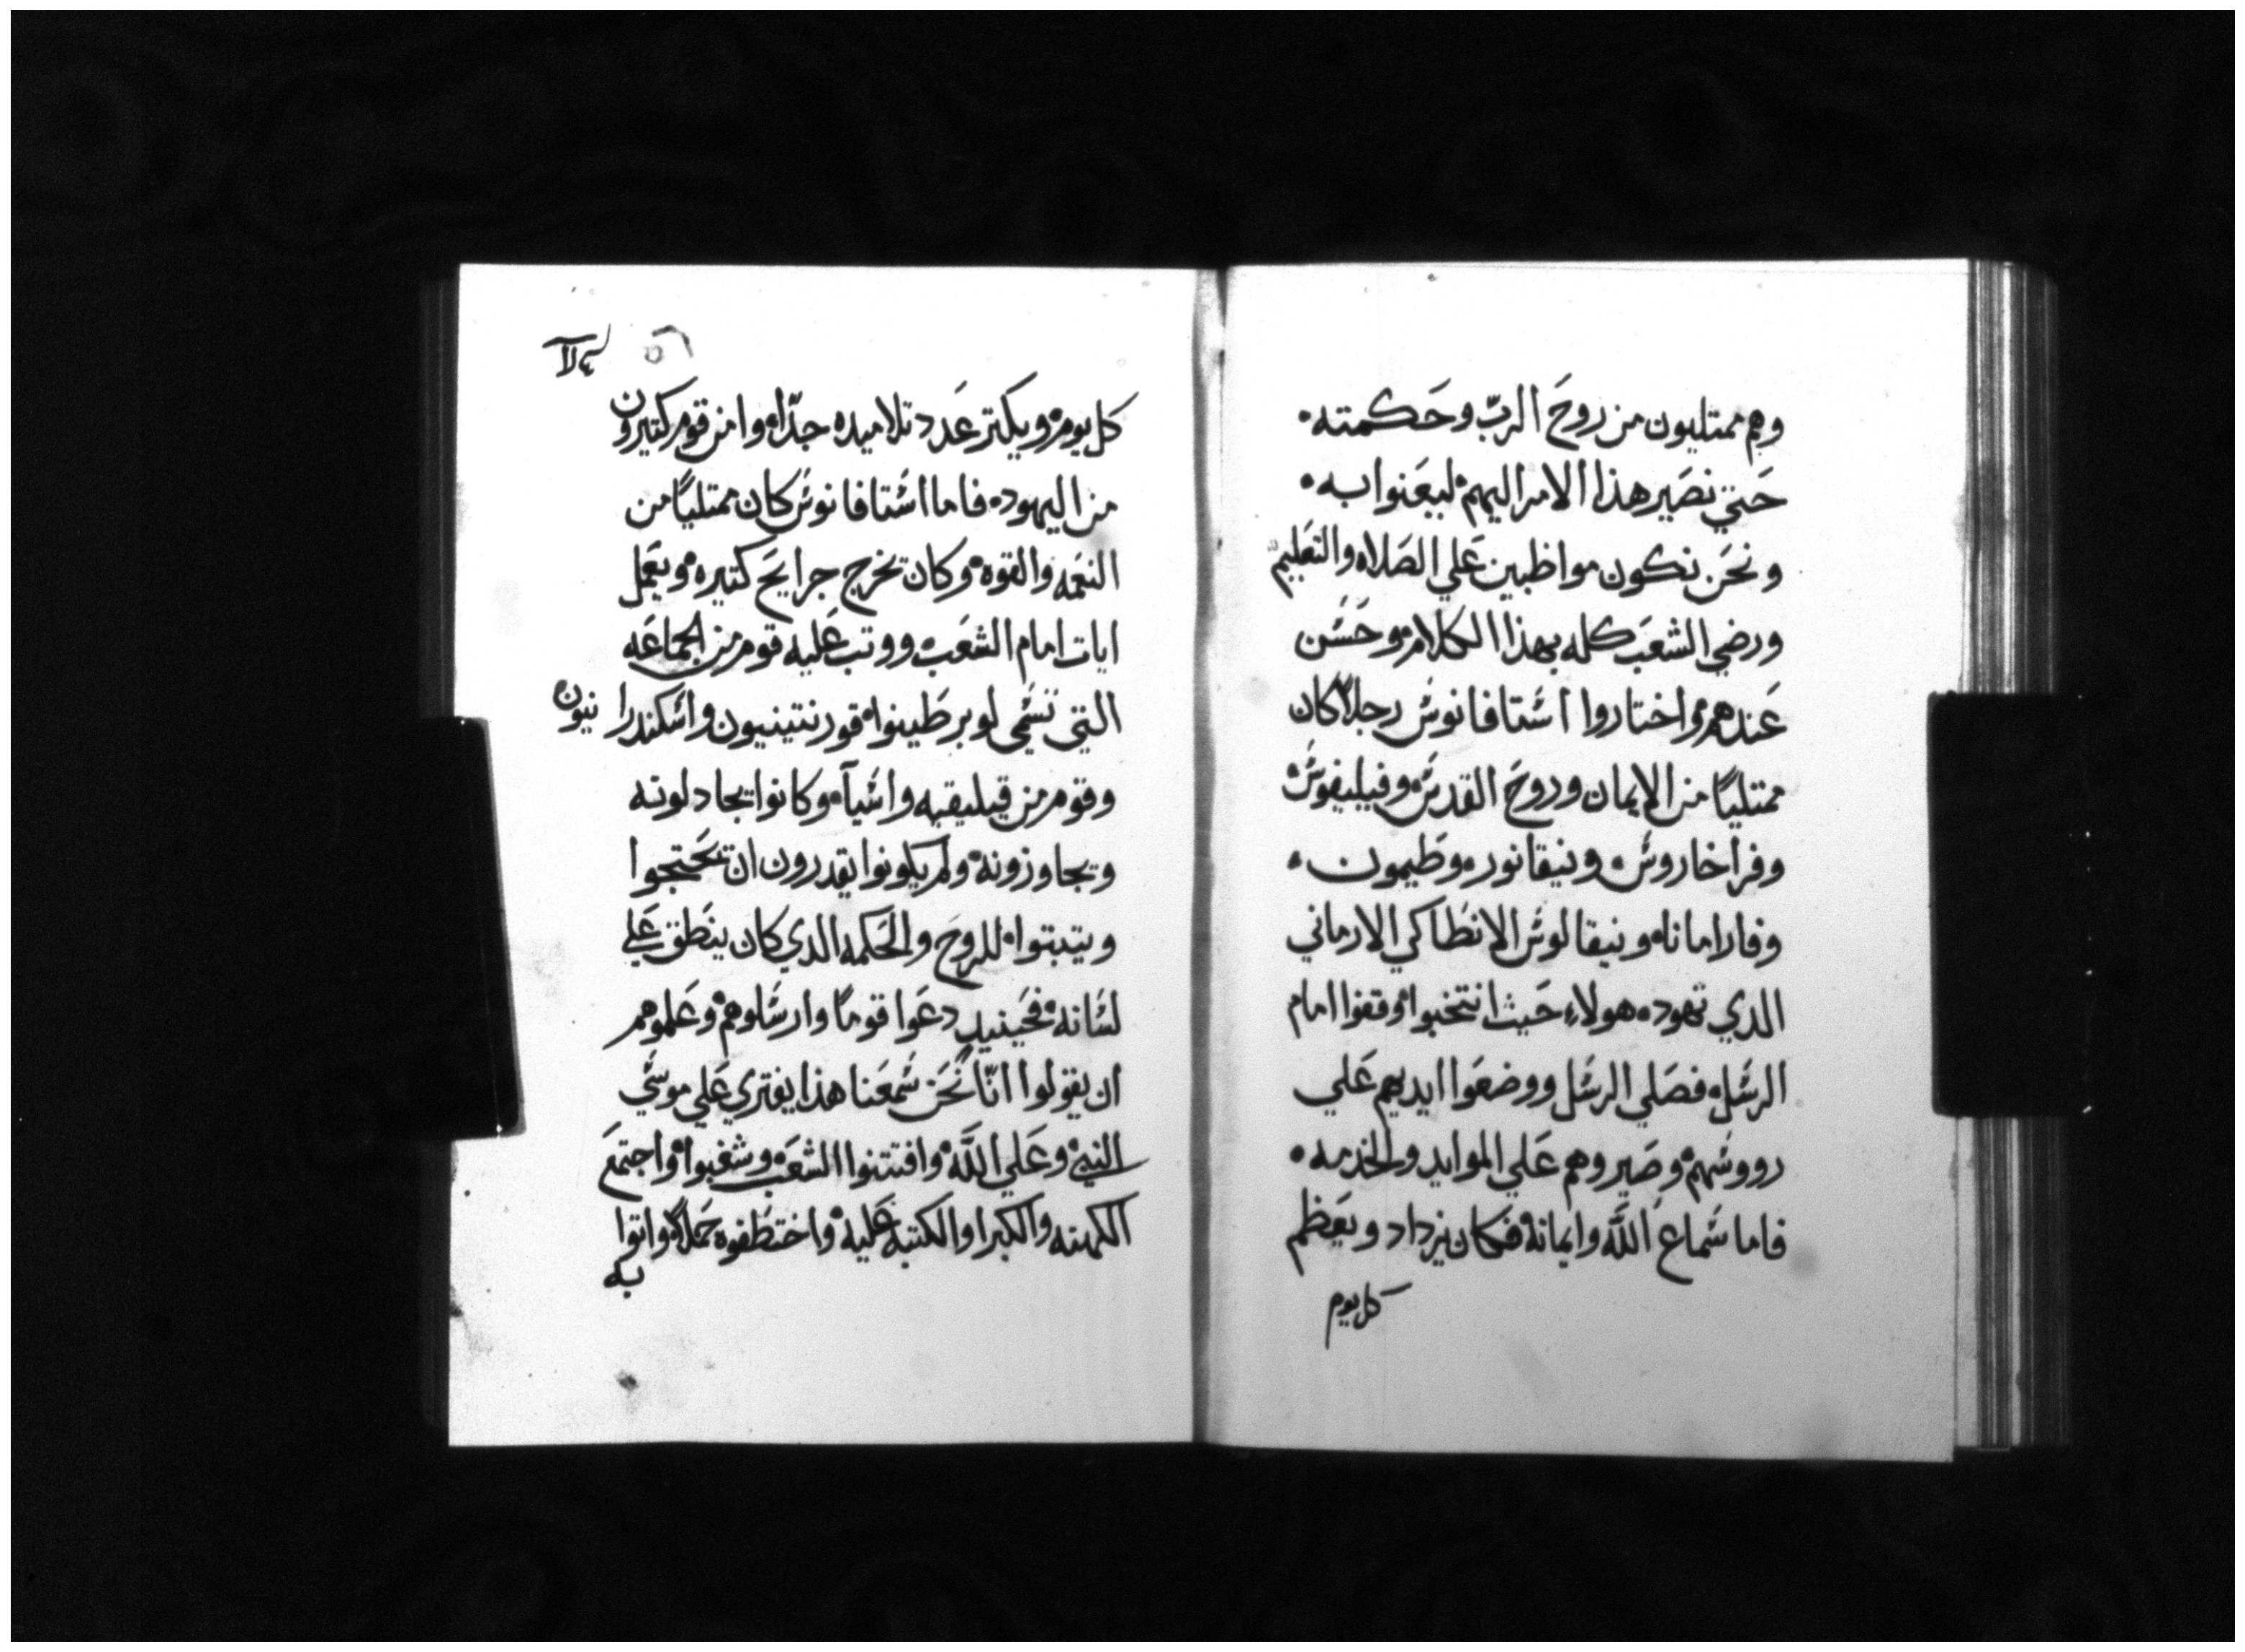 وهم ممتليون من روح الرب وحكمته۰
حتي نصير هذا الامر اليهم۰ ليعنوا به۰
ونحن نكون مواظبين علي الصلاه والتعليم۰
ورضي الشعب كله بهذا الكلام۰ وحسن
عندهم۰ واختاروا اشتافانوش رجلاً كان
ممتلياً من الايمان وروح القدس۰ وفيليفوش۰
وفراخاروش۰ ونيقانور۰ وطيمون۰
وفارامانا۰ ونيقالوش الانطاكي الارماني
الدي تهود۰ هولاء حيث انتخبوا۰ وقفوا امام
الرسل۰ فصلي الرسل ووضعوا ايديهم علي
رووسهم۰ وصيروهم علي الموايد والخدمه۰
فاما سماع اللّه وايمانه۰ فكان يزداد ويعظم
كل يوم
كل يوم۰ ويكتر عدد تلاميده جدّا۰ وامن قوم كتيرون
من اليهود۰ فاما اشتافانوش كان ممتلياً من
النعمه والقوه۰ وكان يخرج جرايح كتيره۰ ويعمل
ايات امام الشعب۰ ووتب عليه قوم من الجماعه
التي تسمي لوبرطينوا۰ قورنتينيون واسكندرانيون
وقوم من قيليقيه واسيآ۰ وكانوا يجادلونه
ويجاوزونه۰ ولم يكونوا يقدرون ان يحتجوا
ويتبتوا۰ للروح والحكمه الدي كان ينطق علي
لسانه۰ فحينيد دعوا قوماً وارشاوهم۰ وعلموهم
ان يقولوا انّا نحن سمعنا هذا يفتري علي موسي
النبي۰ وعلي اللّه۰ وافتتنوا الشعب۰ وشغبوا۰ واجتمع
الكهنه والكبرا والكتبه عليه۰ واختطفوه حملاً۰ واتوا
به